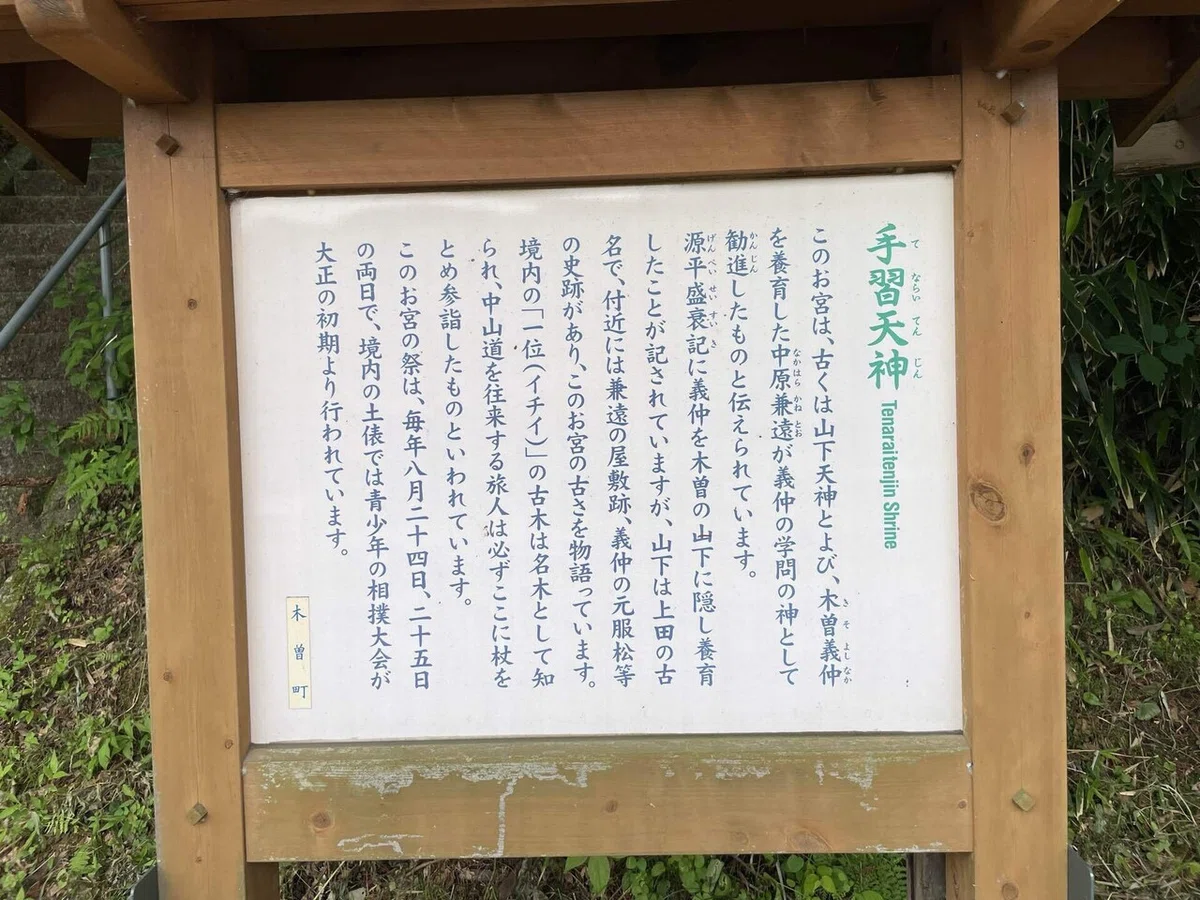 手習天神 Tenaraitenjin Shrine
てならいてんじん
このお宮は、古くは山下天神とよび、木曽義仲
きそよしなか
を養育した中原兼遠が義仲の学問の神として
なかはらかねとお
勧進したものと伝えられています。
かんじん
源平盛衰記に義仲を木曽の山下に隠し養育
げんぺいせいすいき
したことが記されていますが、山下は上田の古
名で、付近には兼遠の屋敷跡、義仲の元服松等
の史跡があり、このお宮の古さを物語っています。
境内の「一位(イチイ)」の古木は名木として知
られ、中山道を往来する旅人は必ずここに杖を
とめ参詣したものといわれています。
このお宮の祭は、毎年八月二十四日、二十五日
の両日で、境内の土俵では青少年の相撲大会が
大正の初期より行われています。
木曽町